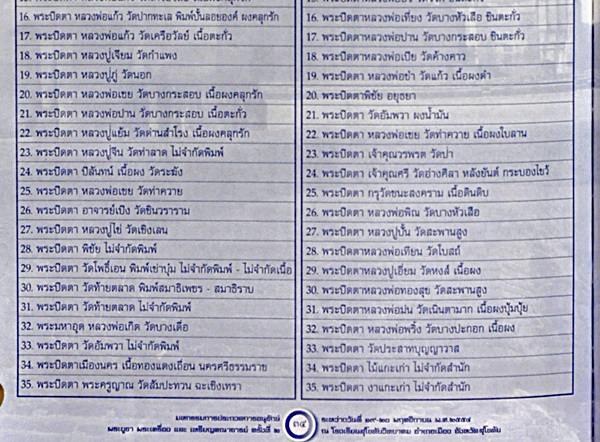 16. พระปิดตา หลวงพ่อแก้ว วัดปากทะเล พิมพ์ปั้นลอยองค์ ผงคลุกรัก
17. พระปิดตา หลวงพ่อแก้ว วัดเครือวัลย์ เนื้อตะกั่ว
18. พระปิดตา หลวงปู่เจียม วัดกำแพง
19. พระปิดตา หลวงปู่ภู่ วัดนอก
20. พระปิดตา หลวงพ่อเชย วัดบางกระสอบ เนื้อผงคลุกรัก
21. พระปิดตา หลวงพ่อปาน วัดบางกระสอบ เนื้อตะกั่ว
22. พระปิดตา หลวงปู่แย้ม วัดด่านสำโรง เนื้อผงคลุกรัก
23. พระปิดตา หลวงปู่จีน วัดท่าลาด ไม่จำกัดพิมพ์
24. พระปิดตา ปิลันทน์ เนื้อผง วัดระฆัง
25. พระปิดตา หลวงพ่อเชย วัดท่าควาย
26. พระปิดตา อาจารย์เปิง วัดชินวราราม
27. พระปิดตา หลวงปู่ไข่ วัดเชิงเลน
28. พระปิดตา พิชัย ไม่จำกัดพิมพ์
29. พระปิดตา วัดโพธิ์เอน พิมพ์เข่าบุ๋ม ไม่จำกัดพิมพ์ - ไม่จำกัดเนื้อ
30. พระปิดตา วัดท้ายตลาด พิมพ์สมาธิเพชร - สมาธิราบ
31. พระปิดตา วัดท้ายตลาด ไม่จำกัดพิมพ์
32. พระมหาอุด หลวงพ่อเกิด วัดบางเดื่อ
33. พระปิดตา วัดอัมพวา ไม่จำกัดพิมพ์
34. พระปิดตาเมืองนคร เนื้อทองแดงเถื่อน นครศรีธรรมราช
35. พระปิดตา พระครูญาณ วัดสัมปะทวน ฉะเชิงเทรา
16. พระปิดตา หลวงพ่อเที่ยง วัดบางหัวเสือ ชินตะกั่ว
17. พระปิดตา หลวงพ่อปาน วัดบางกระสอบ ชินตะกั่ว
18. พระปิดตา หลวงพ่อเปีย วัดค้างคาว
19. พระปิดตา หลวงพ่อขำ วัดแก้ว เนื้อผงดำ
20. พระปิดตาพิชัย อยุธยา
21. พระปิดตา วัดอัมพวา ผงน้ำมัน
22. พระปิดตา หลวงพ่อเชย วัดท่าควาย เนื้อผงใบลาน
23. พระปิดตา เจ้าคุณวรพรต วัดป่า
24. พระปิดตา เจ้าคุณศรี วัดอ่างศิลา หลังยันต์ กระบองไขว้
25. พระปิดตา กรุวัดชนะสงคราม เนื้อดินดิบ
26. พระปิดตา หลวงพ่อพิณ วัดบางหัวเสือ
27. พระปิดตา หลวงปู่ปั้น วัดสะพานสูง
28. พระปิดตาหลวงพ่อเทียน วัดโบสถ์
29. พระปิดตาหลวงปู่เอี่ยม วัดหงส์ เนื้อผง
30. พระปิดตาหลวงพ่อทองสุข วัดสะพานสูง
31. พระปิดตาหลวงพ่อม่น วัดเนินตามาก เนื้อผงปุ้มปุ้ย
32. พระปิดตา หลวงพ่อพริ้ง วัดบางปะกอก เนื้อผง
33. พระปิดตา วัดประสาทบุญญาวาส
34. พระปิดตา ไม้แกะเก่า ไม่จำกัดสำนัก
35. พระปิดตา งาแกะเก่า ไม่จำกัดสำนัก
มหกรรมการประกวดการอนุรักษ์
พระบูชา พระเครื่อง และ เหรียญคณาจารย์ ครั้งที่ ๒
๓๔
ระหว่างวันที่ ๑๙-๒๐ พฤศจิกายน พ.ศ.๒๕๕๔
ณ โรงเรียนสุโขทัยวิทยาคม อำเภอเมือง จังหวัดสุโขทัย